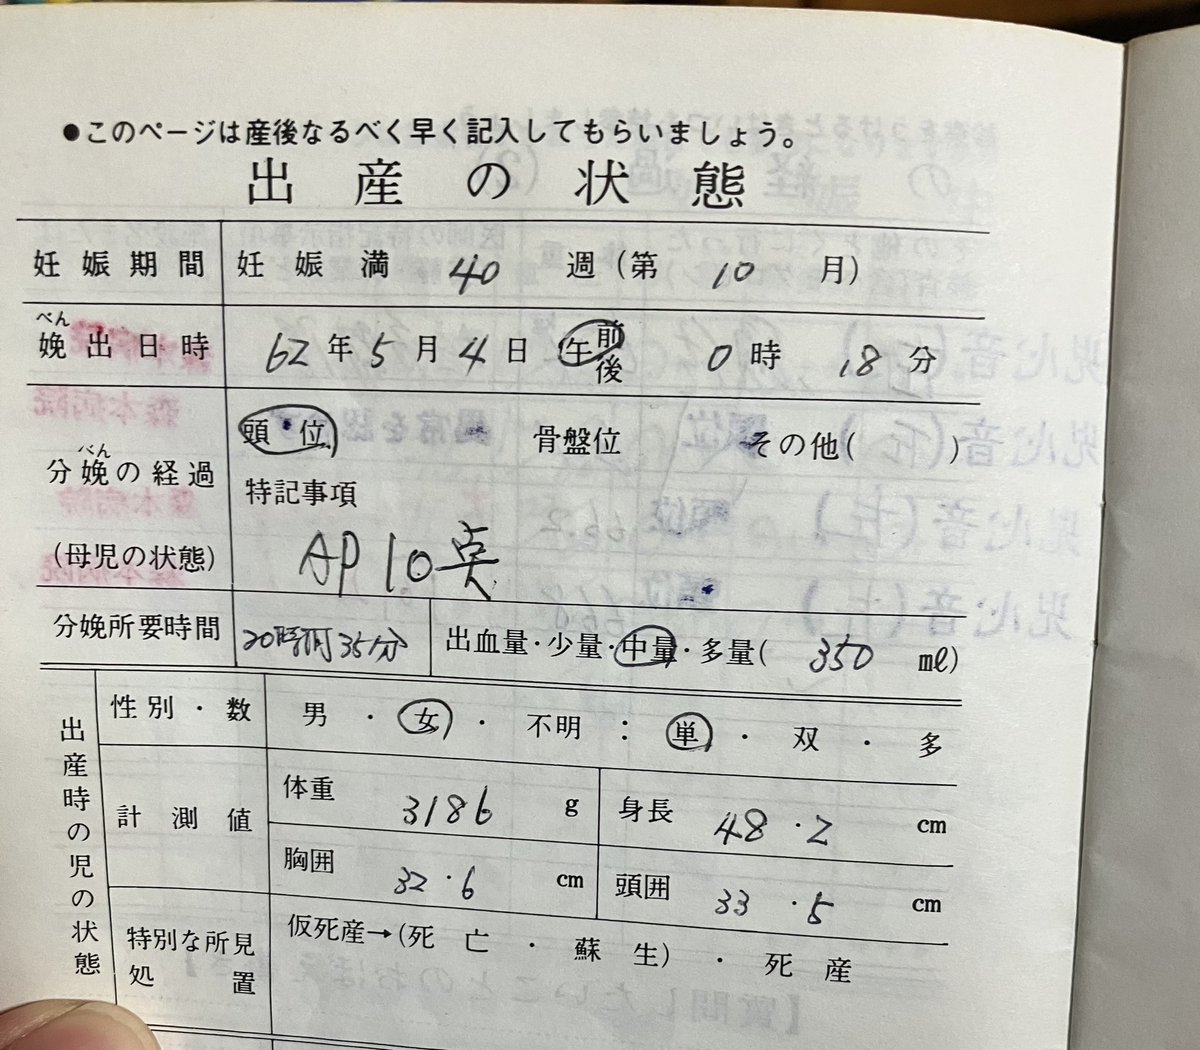 ●このページは産後なるべく早く記入してもらいましょう。
出産の状態
妊娠期間 妊娠満 40 週(第 10 月)
べん
娩出日時 62年5月4日 午前後 0時18分
頭位 骨盤位 その他( )
べん
分娩の経過
特記事項
(母児の状態) AP 10点
分娩所要時間 20時間35分 出血量・少量・中量・多量( 350 ml)
出産時の児の状態
性別・数 男・女・不明:単・双・多
計測値 体重 3186 g 身長 48.2 cm
胸囲 32.6 cm 頭囲 33.5 cm
特別な所見 仮死産→(死亡・蘇生)・死産
処置
森本病院
森本病院
森本病院
森本病院